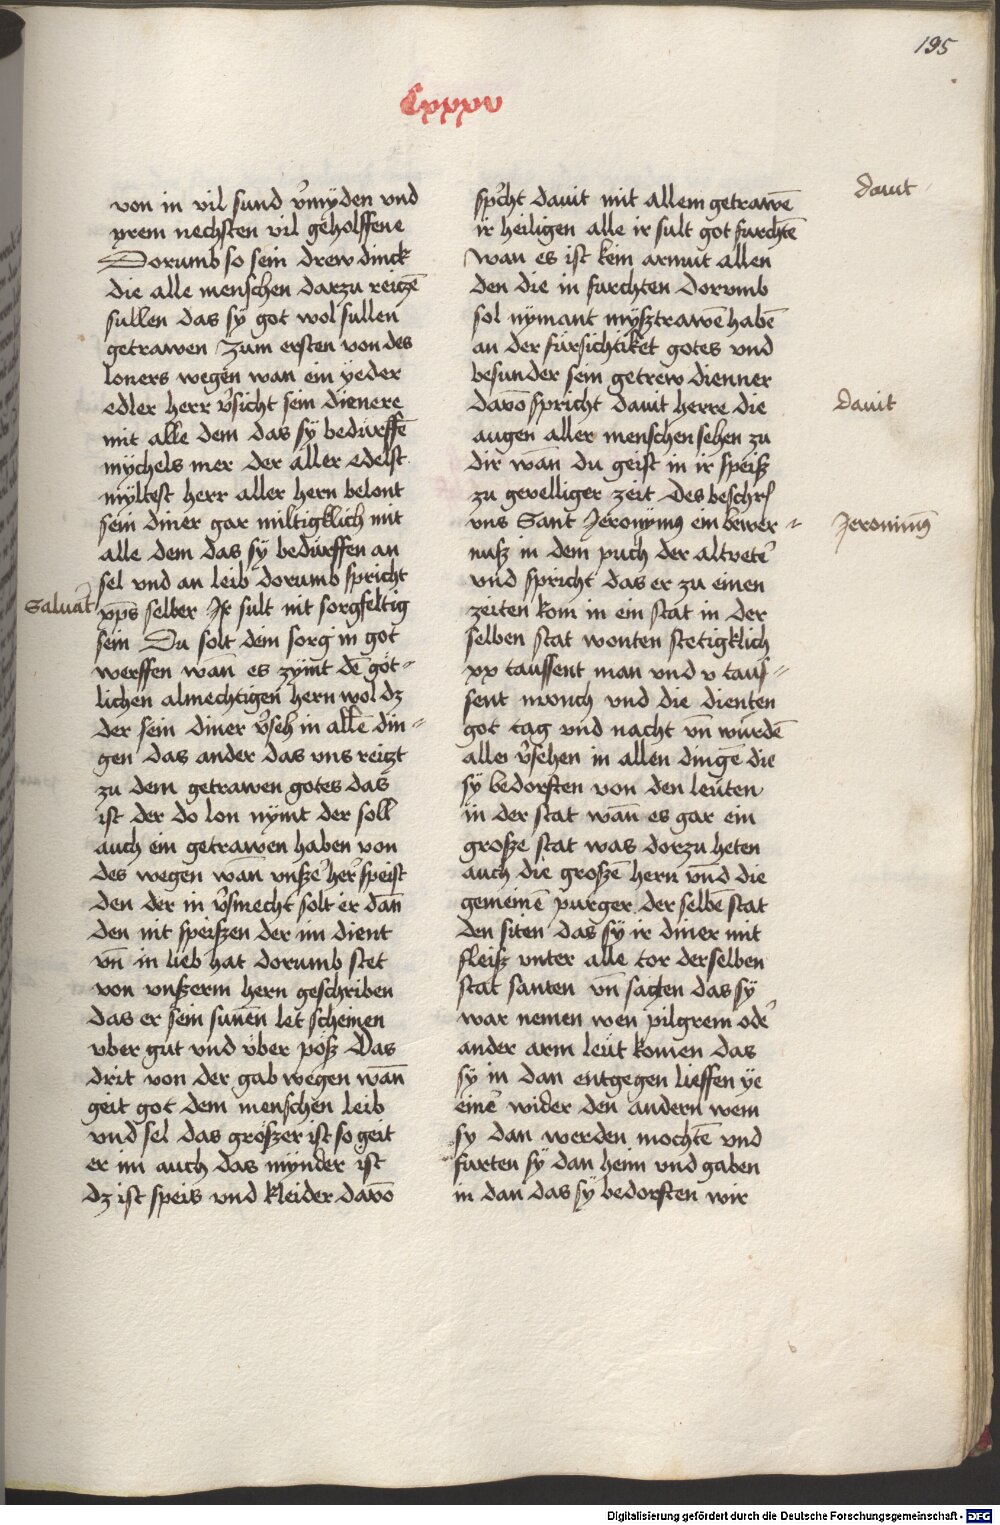 195
Cxxxv
von in vil sund v̓myden vnd
yrem nechsten vil geholffene
Dorumb so sein drew dinck
die alle menschen darzu reiczē
sullen das sÿ got wol sullen
getrawen Zum ersten von des
loners wegen wan ein yeder
edler herr v̓sicht sein dienere
mit alle dem das sÿ bedürffē
mÿchels mer der aller edelst
mÿltest herr aller hern belont
sein diner gar miltigklich mit
alle dem das sÿ bedürffen an
sel vnd an leib dorumb spricht
Saluat̓
xp̄s selber Ir sult nit sorgfeltig
sein Du solt dein sorg in got
werffen wan̄ es zÿmt dē göt-
lichen almechtigen hern wol dz
der sein diner v̓seh in allē din-
gen das ander das vns reiczt
zu dem getrawen gotes das
ist der do lon nymt der soll
auch ein getrawen haben von
des wegen wan̄ vnsze̓ her̓ speist
den der in v̓smecht solt er dan̄
den nit speiszen der im dient
vn̄ in lieb hat dorumb stet
von vnszerm hern geschriben
das er sein sunēn let scheinen
vber gut vnd vber pösz Das
drit von der gab wegen wan̄
geit got dem menschen leib
vnd sel das gröszer ist so geit
er im auch das mÿnder ist
dz ist speis vnd kleider davō
sp̓cht dauit mit allem getrawē
dauit
ir heiligen alle ir sult got furchtē
wan es ist kein armut allen
den die in furchten Dorvmb
sol nymant mÿsztrawē habē
an der fürsichtiket gotes vnd
besunder sein getrew dienner
davō spricht dauit herre die
dauit
augen aller menschen sehen zu
dir wan̄ du geist in ir speisz
zu gevelliger zeit Des beschrſ
vns Sant Jeronÿmꝰ ein bewer-
Jeronimꝰ
nusz in dem puch der altvete̓
vnd spricht das er zu einen
zeiten kom in ein stat in der
selben stat wonten stetigklich
xx taussent man vnd v taus-
sent monch vnd die dienten
got tag vnd nacht vn̄ wurdē
alle v̓sehen in allen dingē die
sÿ bedorften von den leuten
in der stat wan̄ es gar ein
grosze stat was dorzu heten
auch die groszē hern vnd die
gemeinē purger der selbē stat
den siten das sÿ ir diner mit
fleisz vnter alle tor derselben
stat santen vn̄ sagten das sÿ
war nemen wen pilgrem ode̓
ander arm leut komen das
sÿ in dan entgegen lieffen ye
eine̓ wider den andern wem
sy dan werden mochtē vnd
furten sÿ dan heim vnd gaben
in dan das sÿ bedorften wir
Digitalisierung gefördert durch die Deutsche Forschungsgemeinschaft - DFG